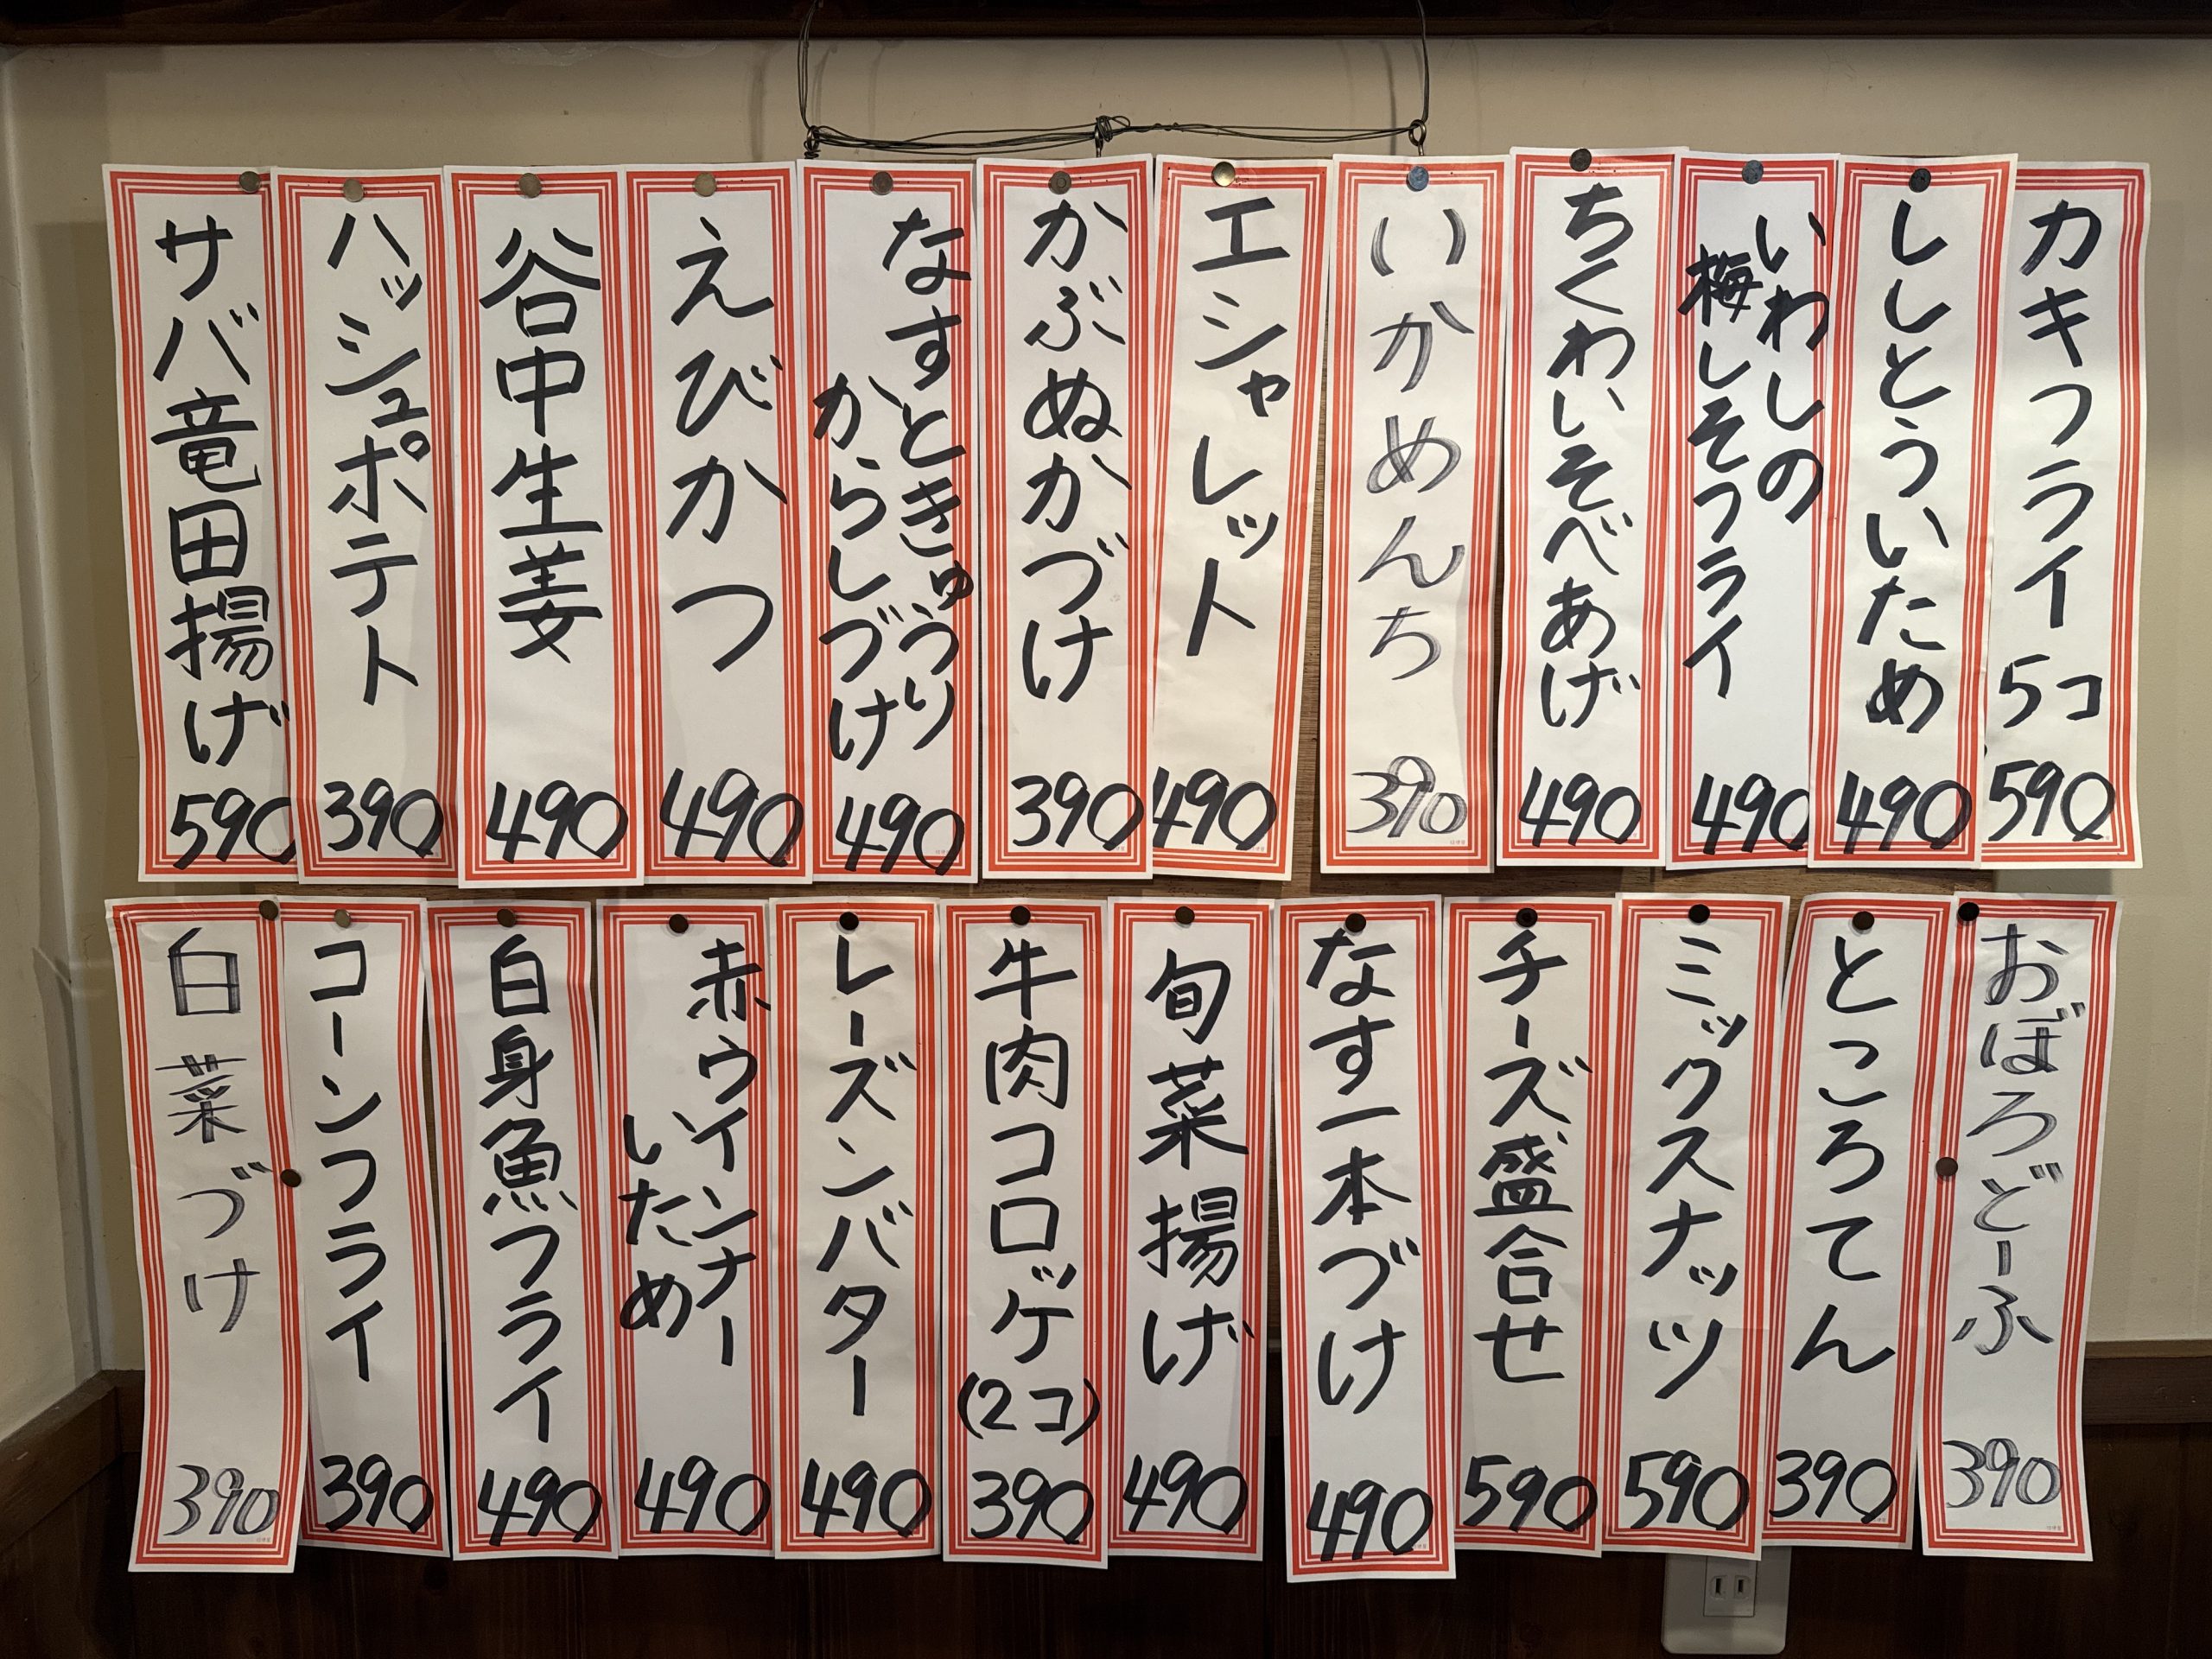 カキフライ 5コ 590
ししとういため 490
いわしの
梅しそフライ 490
ちくわいそべあげ 490
いかめんち 390
エシャレット 490
かぶぬかづけ 390
なすときゅうり
からしづけ 490
えびかつ 490
谷中生姜 490
ハッシュポテト 390
サバ竜田揚げ 590
おぼろどーふ 390
ところてん 390
ミックスナッツ 590
チーズ盛合せ 590
なす一本づけ 490
旬菜揚げ 490
牛肉コロッケ(2コ) 390
レーズンバター 490
赤ウインナー
いため 490
白身魚フライ 490
コーンフライ 390
白菜づけ 390